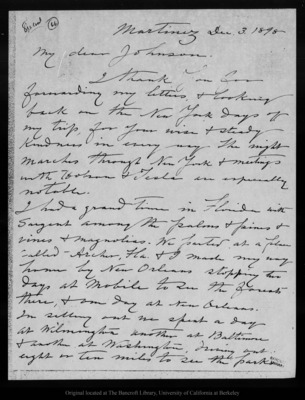 Martinez Dec. 3. 1898
My dear Johnson.
I thank you for
forwarding my letters, & looking
back on the New York days of
my trip, for your wise & steady
kindness in every way. The night
marches through New York & meetings
with & Tesla are especially
notable.
I had a grand time in Florida with
Sargent among the Palms & pines &
vines & magnolias. We parted at a place
called Archer, Fla. & I made my way
home by New Orleans stopping two
days at Mobile to see the forests
there, & one day at New Orleans.
In setting out we spent a day
at Wilmington another at Baltimore
& another at Washington, driving out
eight or ten miles to see the parks
Original located at The Bancroft Library, University of California at Berkeley